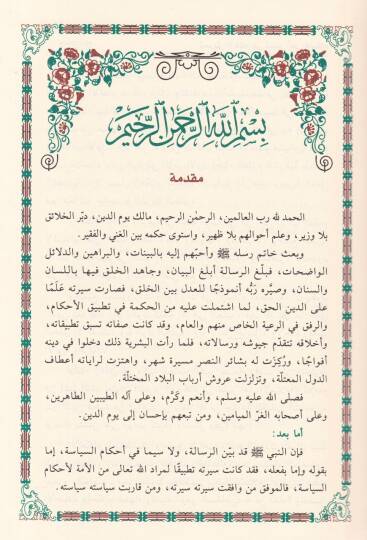 بسم الله الرحمن الرحيم
مقدمة
الحمد لله رب العالمين، الرحمٰن الرحيم، مالك يوم الدين، دبّر الخلائق
بلا وزير، وعلم أحوالهم بلا ظهير، واستوى حكمه بين الغني والفقير.
وبعث خاتم رسله ﷺ وأحبّهم إليه بالبينات، والبراهين والدلائل
الواضحات، فبلّغ الرسالة أبلغ البيان، وجاهد الخلق فيها باللسان
والسنان، وصيّره ربُّه أنموذجًا للعدل بين الخلق، فصارت سيرته عَلَمًا
على الدين الحق، لما اشتملت عليه من الحكمة في تطبيق الأحكام،
والرفق في الرعية الخاص منهم والعام، وقد كانت صفاته تسبق تطبيقاته،
وأخلاقه تتقدّم جيوشه ورسالاته، فلما رأت البشرية ذلك دخلوا في دينه
أفواجًا، ورُكِزَت له بشائر النصر مسيرة شهر، واهتزت لراياته أعطاف
الدول المعتلّة، وتزلزلت عروش أرباب البلاد المختلّة.
فصلى الله عليه وسلم، وأنعم وكرَّم، وعلى آله الطيبين الطاهرين،
وعلى أصحابه الغرّ الميامين، ومن تبعهم بإحسان إلى يوم الدين.
أما بعد:
فإن النبي ﷺ قد بيّن الرسالة، ولا سيما في أحكام السياسة، إما
بقوله وإما بفعله، فقد كانت سيرته تطبيقًا لمراد الله تعالى من الأمة لأحكام
السياسة، فالموفق من وافقت سيرته سيرته، ومن قاربت سياسته سياسته.